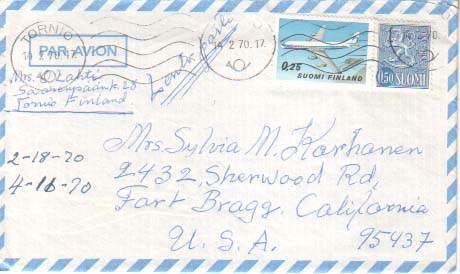 TORNIO
14.2.70.17
PAR AVION
Mrs. Lahti
Tornio Finland
14.2.70.17
0,25
SUOMI FINLAND
0,50 SUOMI
Mrs. Sylvia M. Karhanen
2432, Sherwood Rd,
Fort Bragg. California
U. S. A.
95437
2-18-70
4-16-70